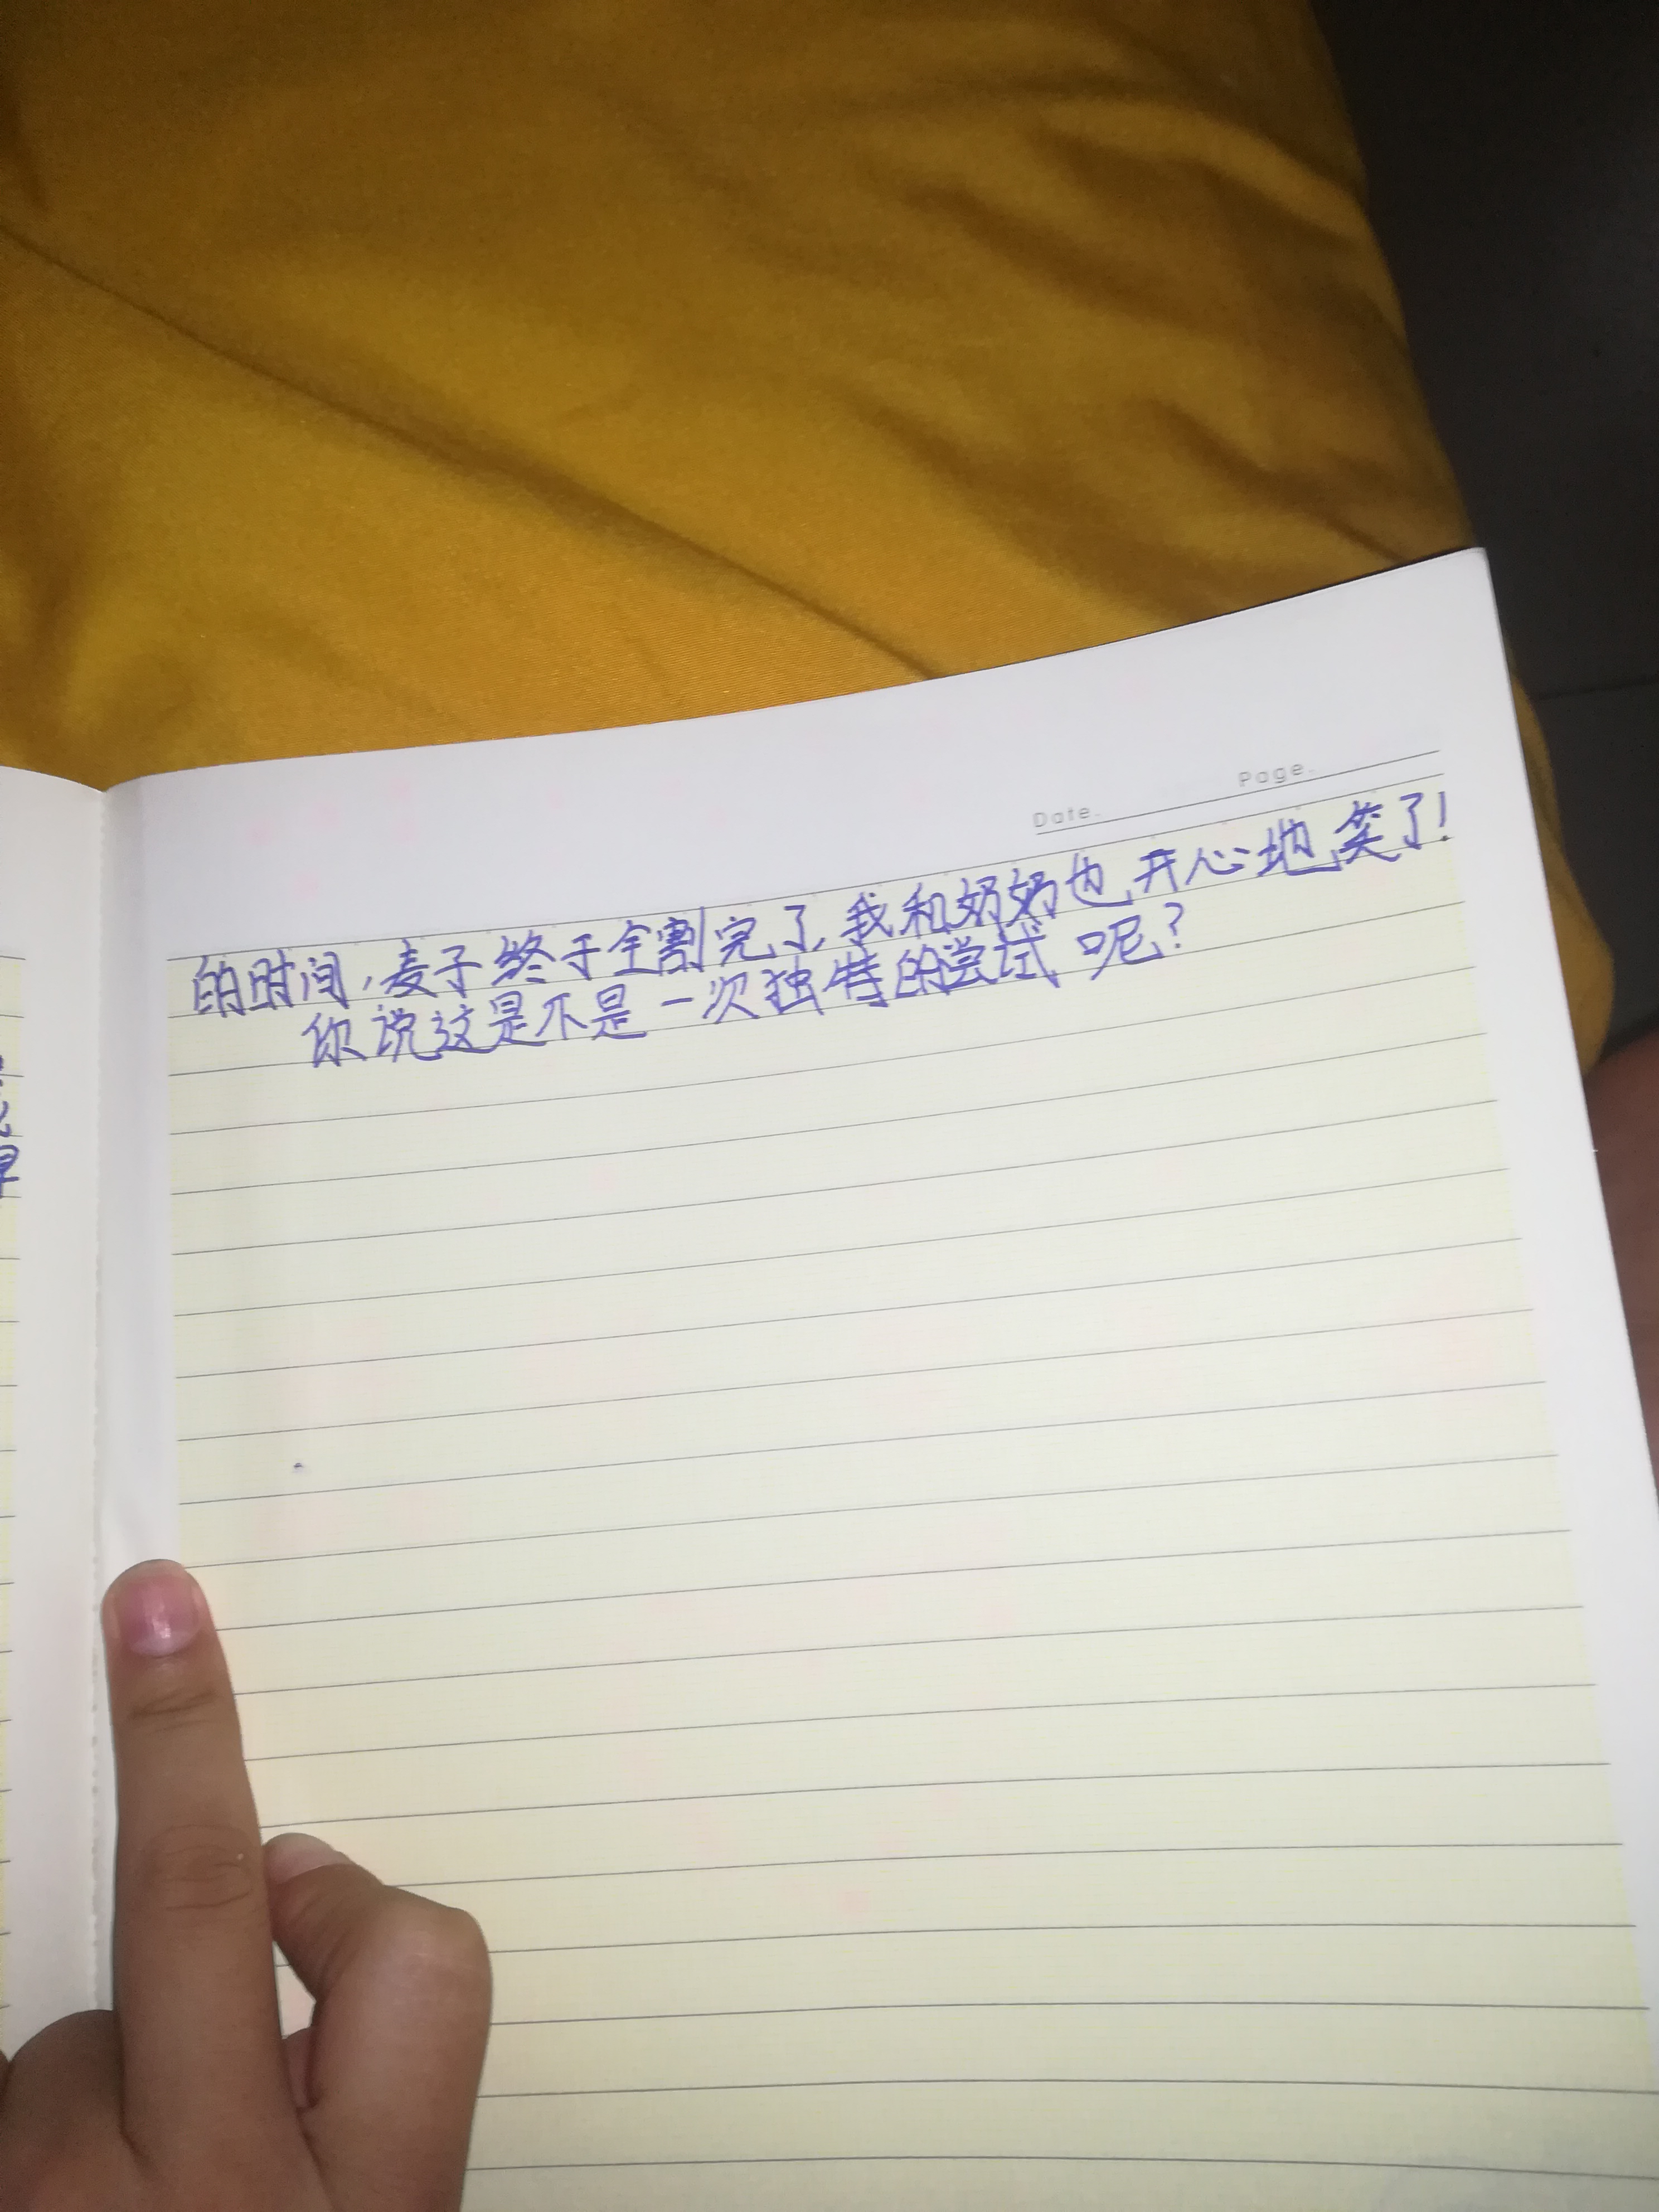 Date. Page.
的时间,麦子终于全割完了,我和奶奶也开心地笑了!
你说这是不是一次独特的尝试呢?